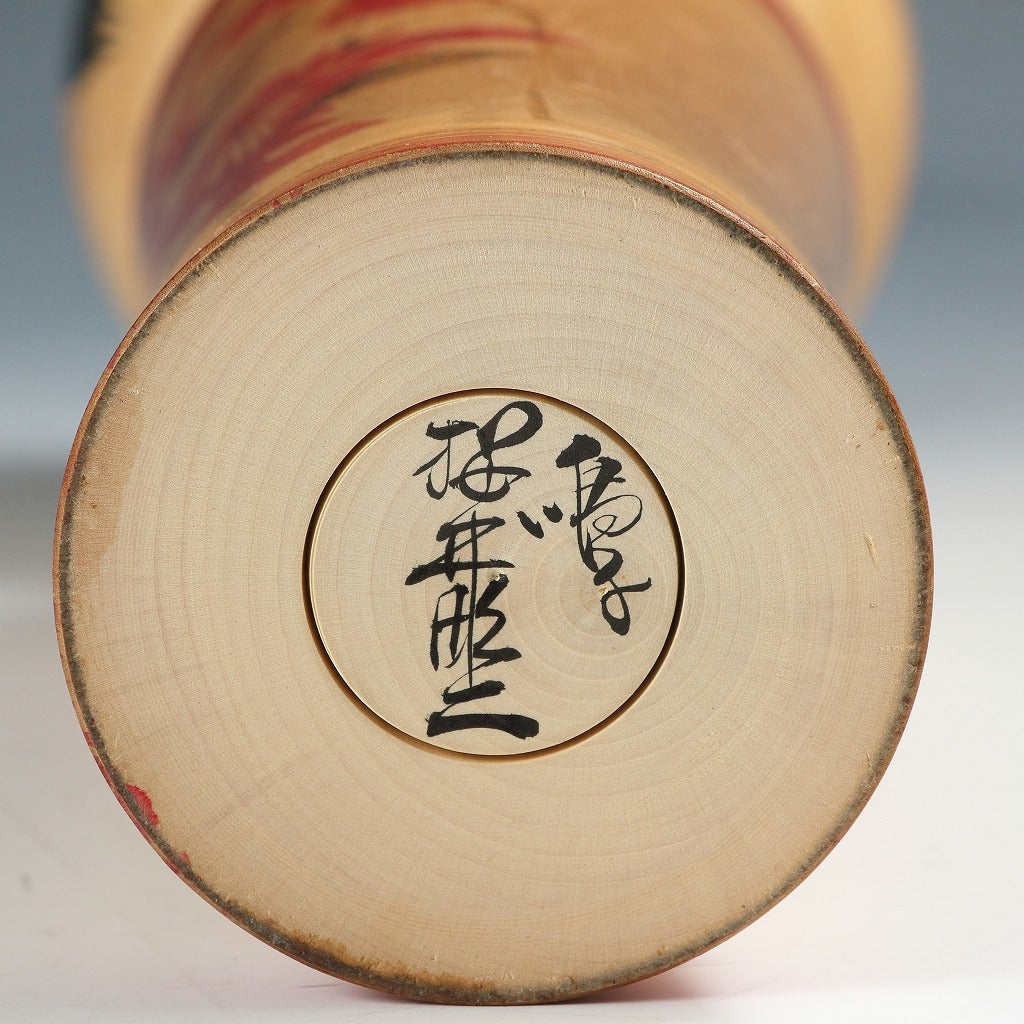 鳴子
桜井昭二